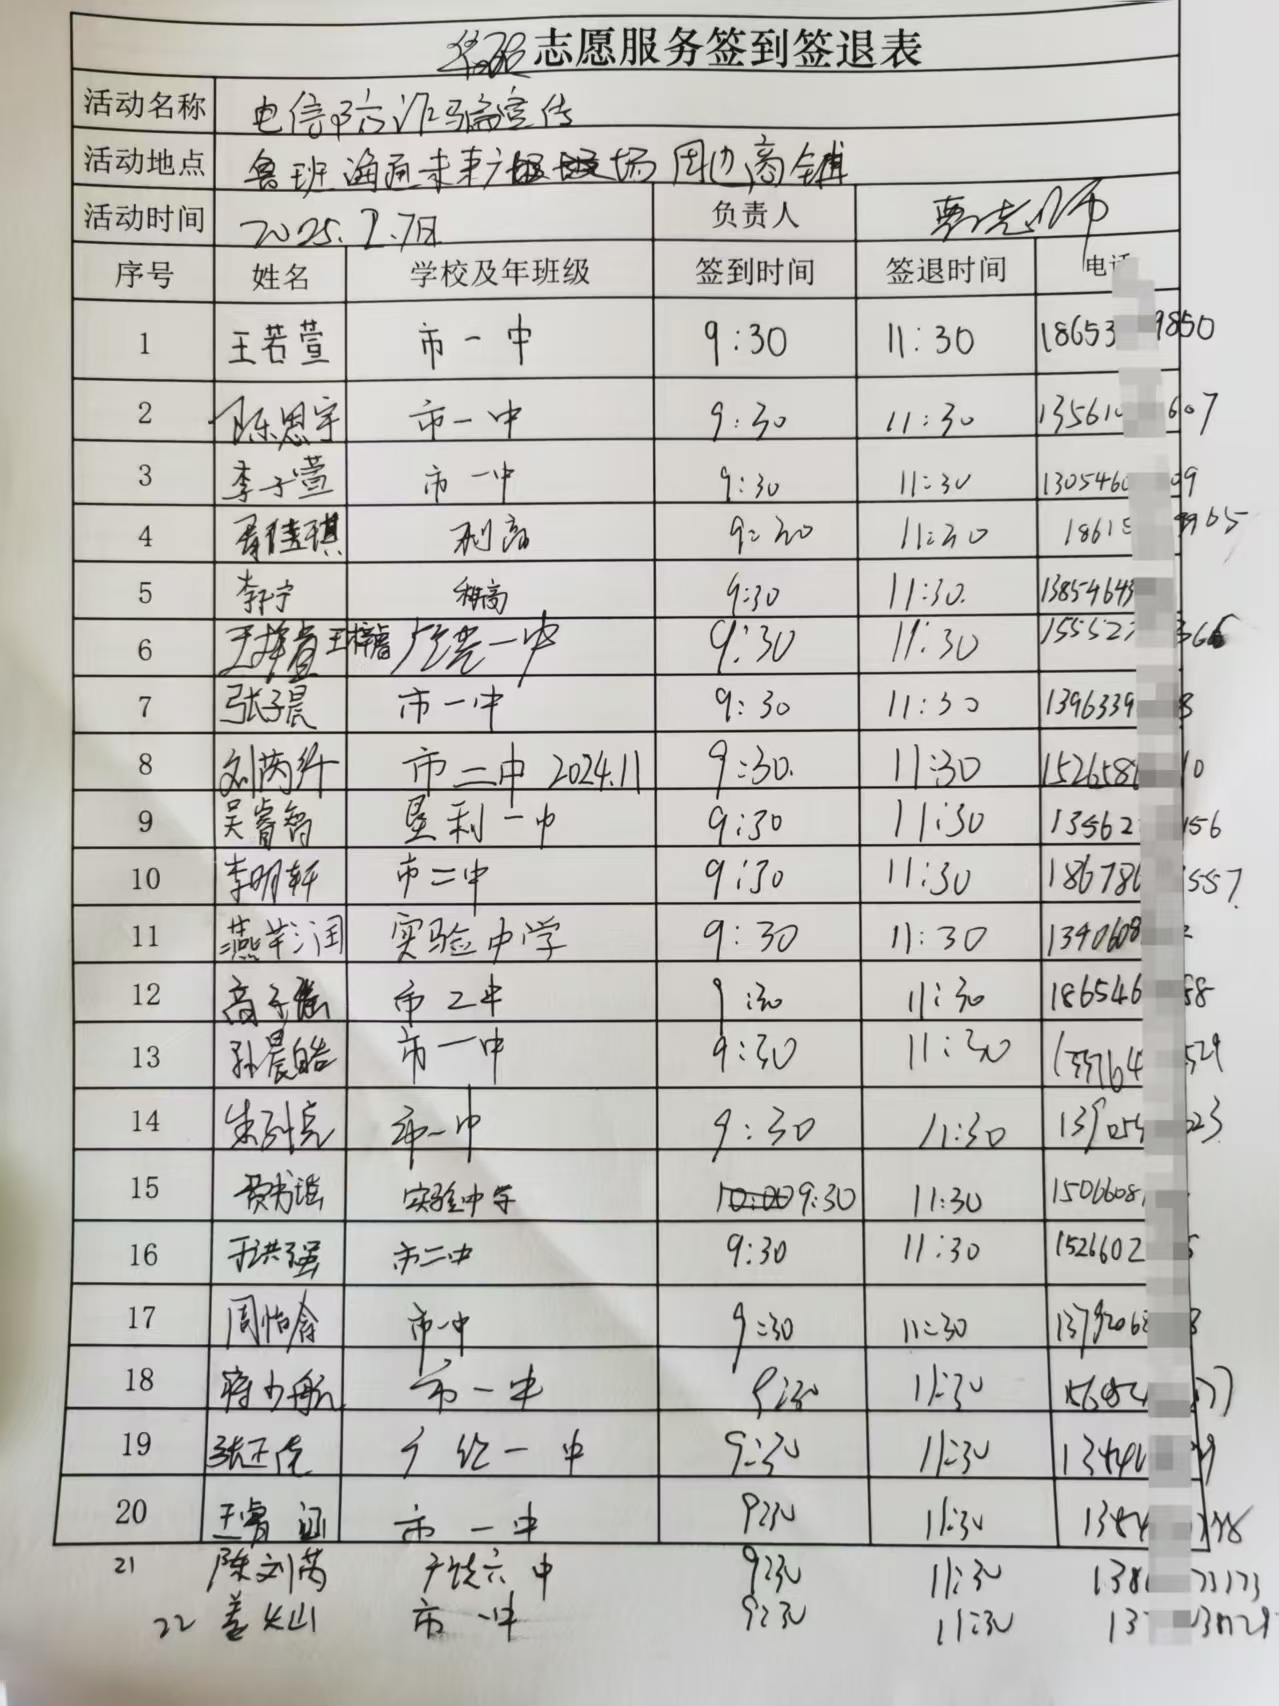 志愿服务签到签退表
活动名称 电信防诈骗宣传
活动地点 鲁班海通未来广场 周边商铺
活动时间 2025.2.7日 负责人 老师
序号 姓名 学校及年班级 签到时间 签退时间 电话
1 王若萱 市一中 9:30 11:30 18653 9850
2 陈思宇 市一中 9:30 11:30 13561 607
3 李子萱 市一中 9:30 11:30 1305460 09
4 佳琪 利高 9:30 11:30 1861 9965
5 李宁 利高 9:30 11:30 13854643
6 王梓睿 王梓睿 一中 9:30 11:30 155527 366
7 张子晨 市一中 9:30 11:30 1396339 8
8 刘芮纤 市二中 2024.11 9:30 11:30 1526586 10
9 吴睿智 垦利一中 9:30 11:30 13562 156
10 李明轩 市二中 9:30 11:30 186786 5557
11 燕芊润 实验中学 9:30 11:30 1340608
12 高子 市二中 9:30 11:30 186546 88
13 孙晨皓 市一中 9:30 11:30 133764 529
14 朱 市一中 9:30 11:30 139054 023
15 黄书瑶 实验中学 10:00 9:30 11:30 1506608
16 于洪强 市二中 9:30 11:30 1526602 5
17 周怡 市一中 9:30 11:30 1379206 8
18 蒋少航 市一中 9:30 11:30 15682 77
19 张正 一中 9:30 11:30 1344 9
20 王睿涵 市一中 9:30 11:30 138
21 陈刘芮 广饶六中 9:30 11:30 138 73173
22 姜 山 市一中 9:30 11:30 13